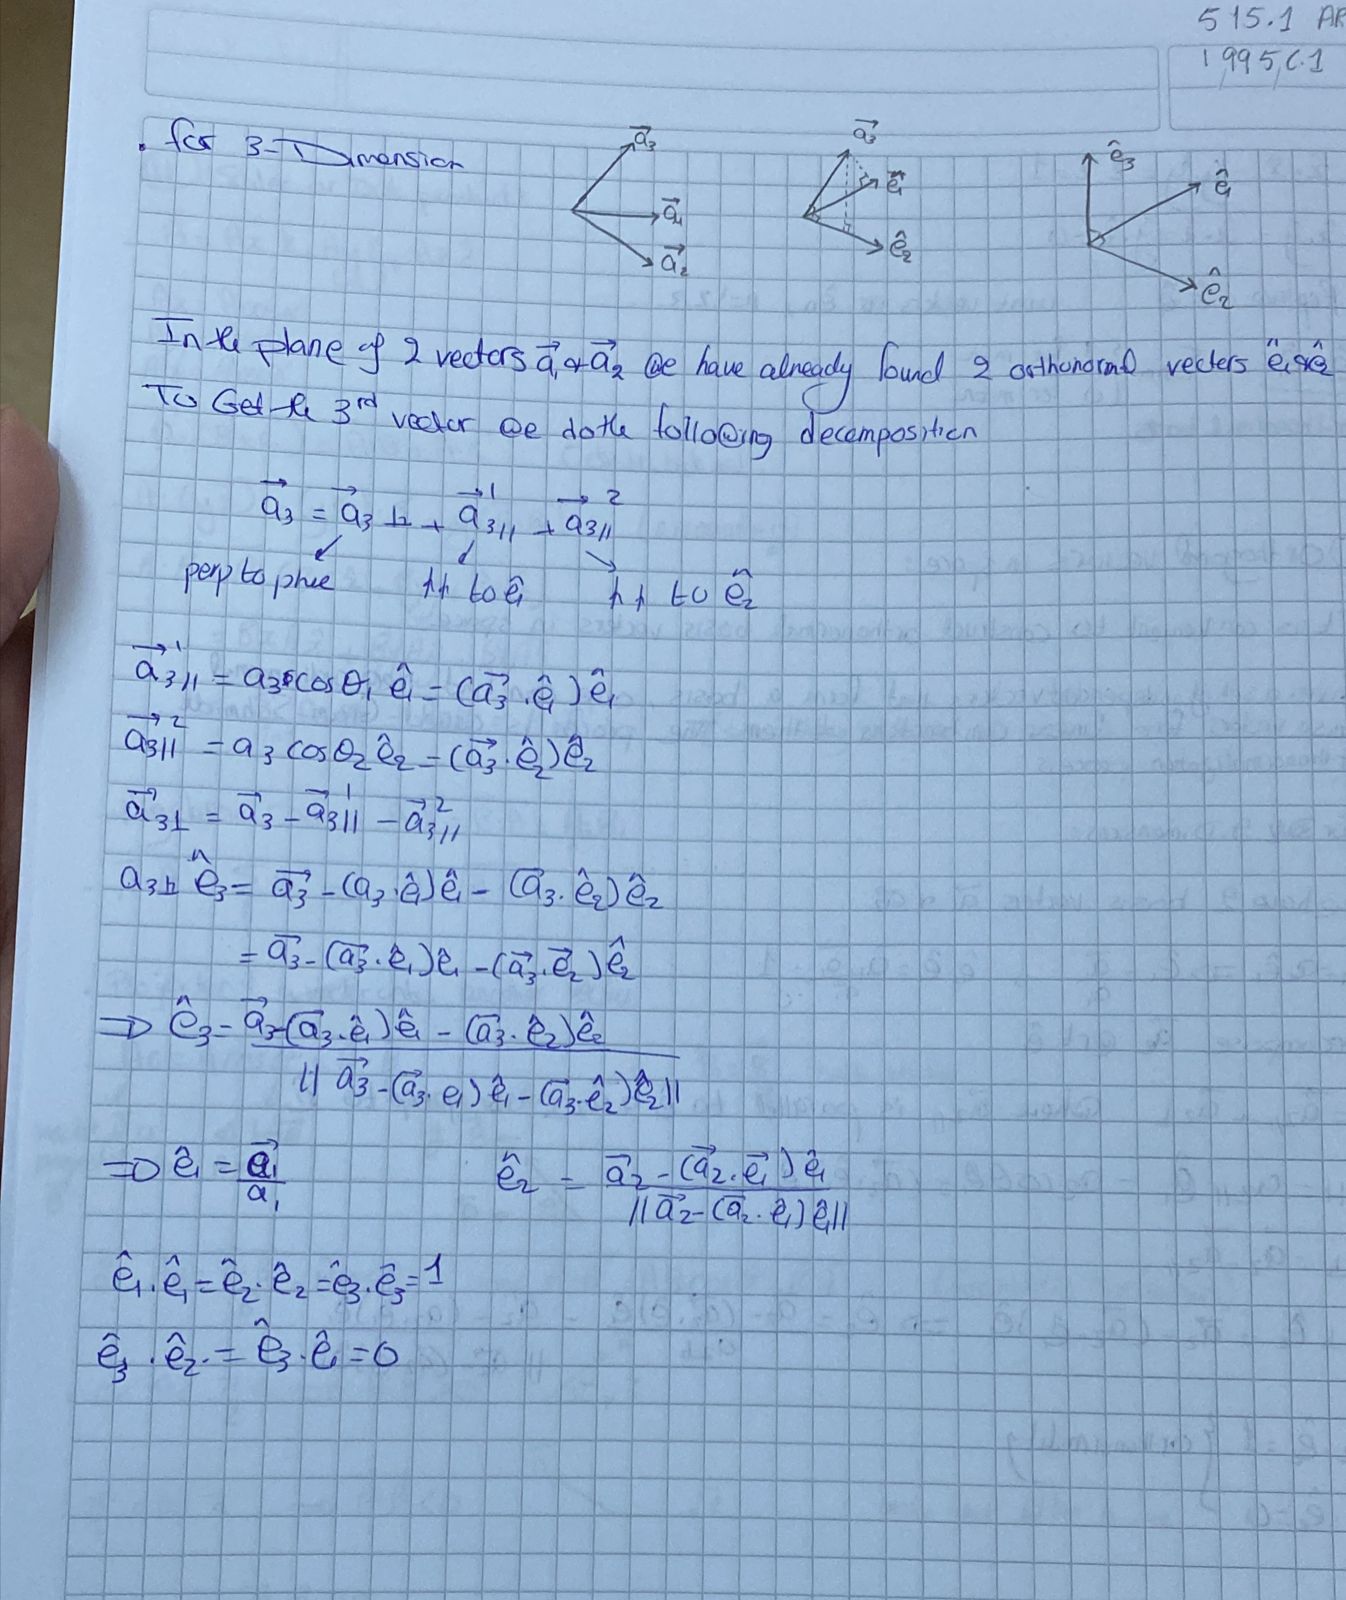 515.1 AR
1995,C.1
. for 3-Dimension
a⃗₃ a⃗₁ a⃗₂
a⃗₃ e⃗₁ ê₂
ê₃ ê₁ ê₂
In the plane of 2 vectors a⃗₁ & a⃗₂ we have already found 2 orthonormal vectors ê₁ & ê₂
To Get the 3rd vector we do the following decomposition
a⃗₃ = a⃗₃⊥ + a⃗₃∥¹ + a⃗₃∥²
perp to plane // to ê₁ // to ê₂
a⃗₃∥¹ = a₃ cosθ₁ ê₁ = (a⃗₃ · ê₁)ê₁
a⃗₃∥² = a₃ cosθ₂ ê₂ = (a⃗₃ · ê₂)ê₂
a⃗₃⊥ = a⃗₃ - a⃗₃∥¹ - a⃗₃∥²
a₃⊥ ê₃ = a⃗₃ - (a₃ · ê₁)ê₁ - (a⃗₃ · ê₂)ê₂
= a⃗₃ - (a⃗₃ · ê₁)ê₁ - (a⃗₃ · e⃗₂)ê₂
⇒ ê₃ = a⃗₃ - (a⃗₃ · ê₁)ê₁ - (a⃗₃ · ê₂)ê₂
|| a⃗₃ - (a⃗₃ · e₁)ê₁ - (a⃗₃ · ê₂)ê₂ ||
⇒ ê₁ = a⃗₁ / a₁ ê₂ = a⃗₂ - (a⃗₂ · e⃗₁)ê₁
|| a⃗₂ - (a⃗₂ · ê₁)ê₁ ||
ê₁ · ê₁ = ê₂ · ê₂ = ê₃ · ê₃ = 1
ê₃ · ê₂ · = ê₃ · ê₁ = 0